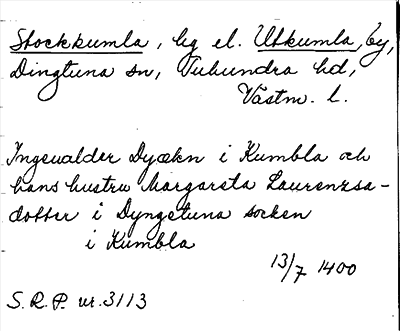 Stockkumla, hg el. Utkumla, by,
Dingtuna sn, Tuhundra hd,
Västm. l.
Ingevalder Dyækn i Kumbla och
hans hustru Margareta Laurenzsa-
dotter i Dyngetuna socken
i Kumbla
13/7 1400
S.R.P. nr. 3113